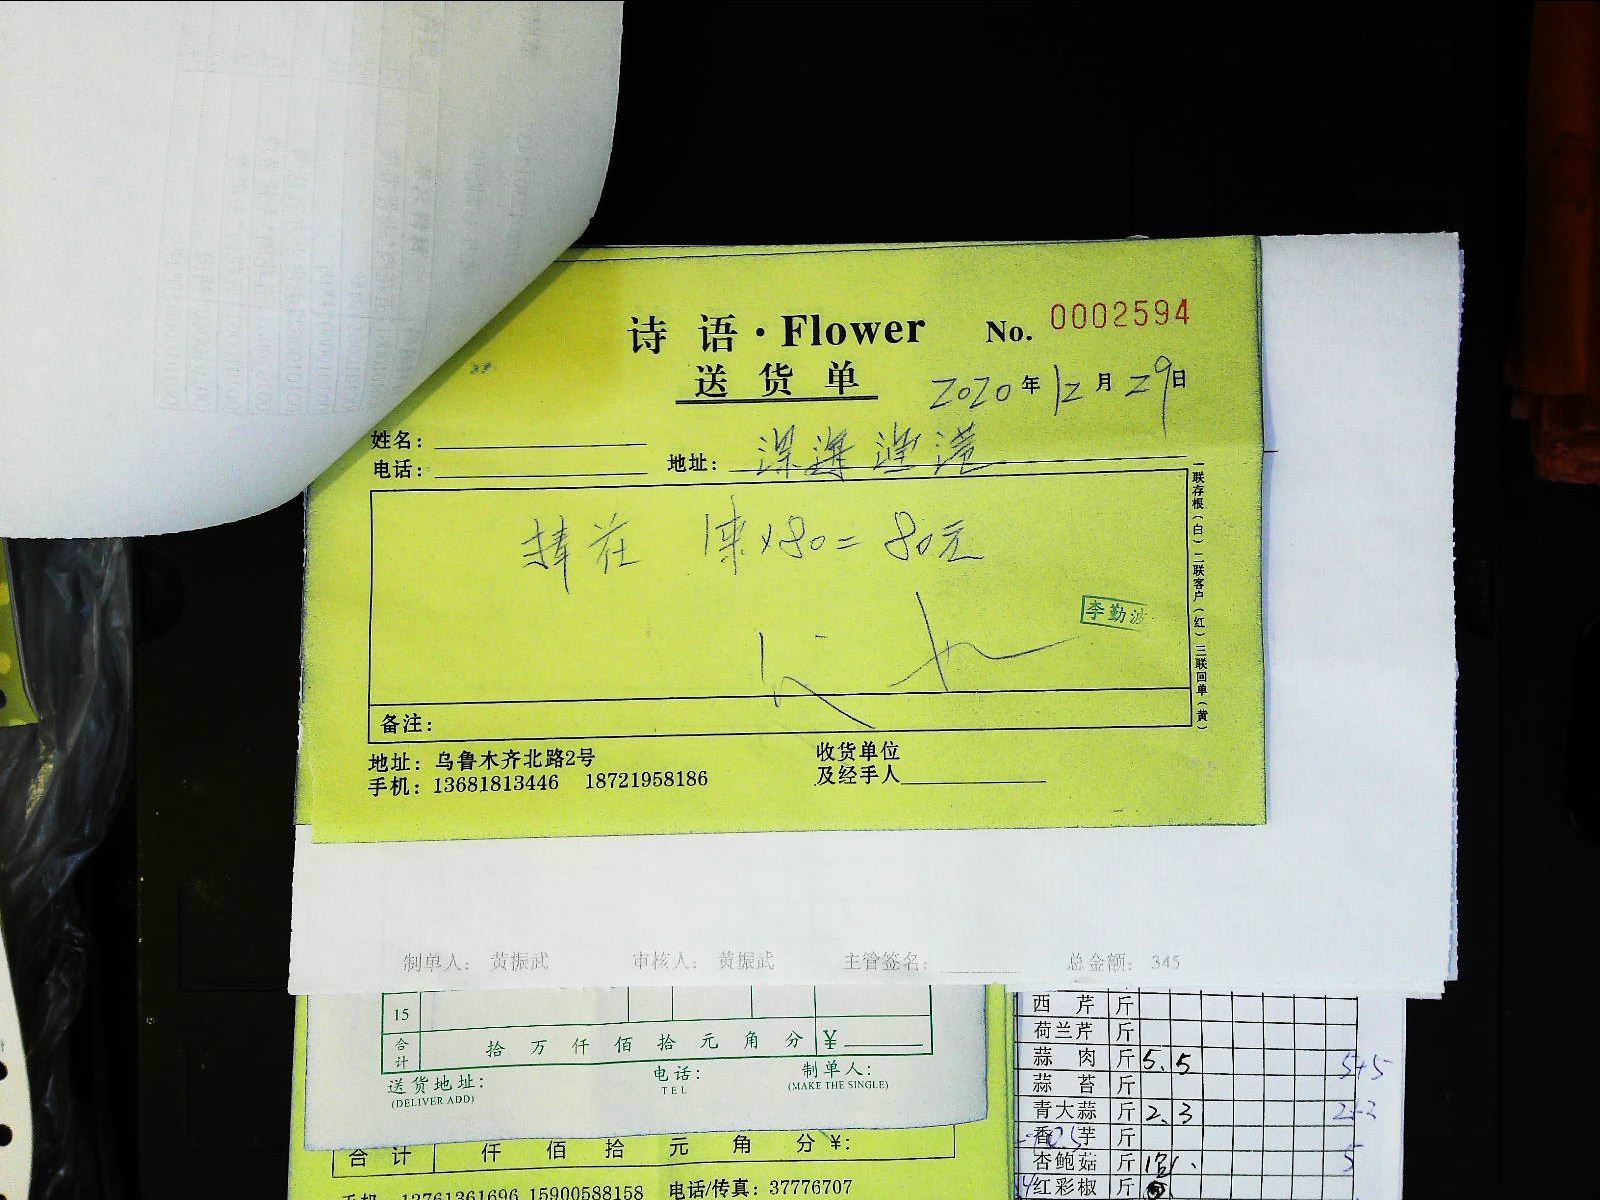 诗 语·Flower No. 0002594
送 货 单
2020年12月29日
姓名：
电话：
地址：
1束×80=80元
李勤波
备注：
一联存根（白）二联客户（红）三联回单（黄）
地址：乌鲁木齐北路2号
手机：13681813446 18721958186
收货单位
及经手人
制单人： 黄振武 审核人： 黄振武 主管签名： 总金额： 345
15
合计 拾 万 仟 佰 拾 元 角 分 ¥
送货地址：
(DELIVER ADD)
电话：
TEL
制单人：
(MAKE THE SINGLE)
合 计 仟 佰 拾 元 角 分 ¥：
手机 13761361696 15900588158 电话/传真：37776707
西 芹 斤
荷兰芹 斤
蒜 肉 斤 5. 5 5+5
蒜 苔 斤
青大蒜 斤 2. 3
香 芋 斤
杏鲍菇 斤 5
红彩椒 斤